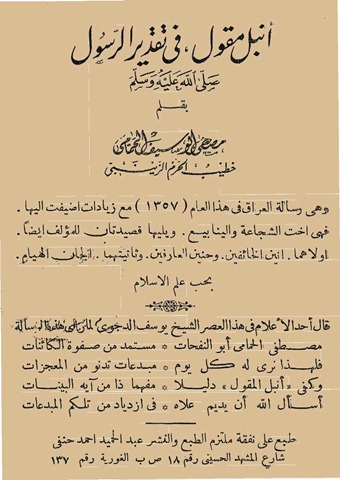 أنبل مقول، في تقدير الرسول
صلى الله عليه وسلم
بقلم
مصطفى أبو سيف الحمامي
خطيب الحرم الزينبي
وهى رسالة العراق فى هذا العام (١٣٥٧) مع زيادات اضيفت اليها.
فهى اخت الشجاعة والينابيع. ويليها قصيدتان للمؤلف ايضًا.
اولاهما. انين الخائفين. وحنين العارفين. وثانيتهما. الحان الهيام.
بحب علم الاسلام
قال أحد الأعلام فى هذا العصر الشيخ يوسف الدجوى لما رأى هذه الرسالة
مصطفى الحمامى أبو النفحات * مستمد من صفوة الكائنات
فلهذا نرى له كل يوم * مبدعات تدنو من المعجزات
وكفى «أنبل المقول» دليلا * مفهما ذا من آيه البينات
أسأل الله أن يديم علاه * فى ازدياد من تلكم المبدعات
طبع على نفقة ملتزم الطبع والنشر عبد الحميد احمد حنفى
شارع المشهد الحسينى رقم ١٨ ص ب الغورية رقم ١٣٧